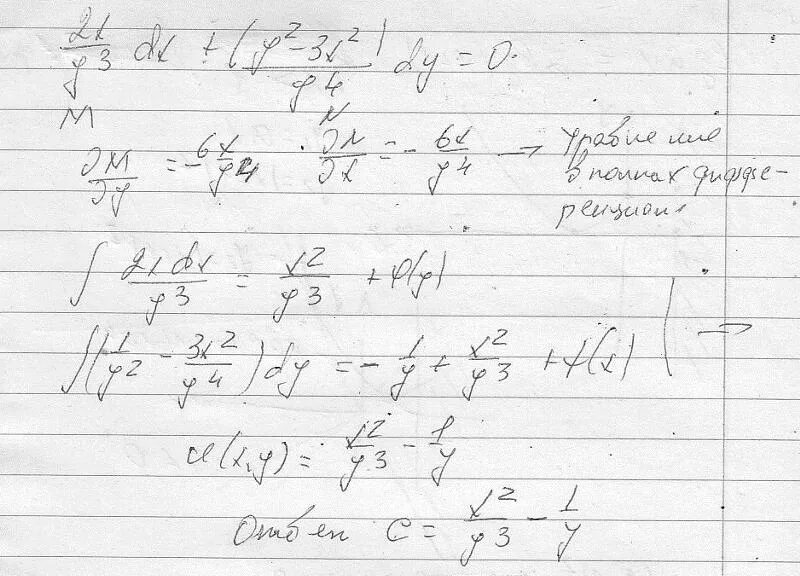 2x/y³ dx + (y² - 3x²)/y⁴ dy = 0.
M N
∂M/∂y = -6x/y⁴ · ∂N/∂x = -6x/y⁴ → уравнение
в полных диффе-
ренциал.
∫ 2x dx/y³ = x²/y³ + φ(y)
∫(1/y² - 3x²/y⁴)dy = -1/y + x²/y³ + ψ(x) | →
u(x,y) = x²/y³ - 1/y
Ответ C = x²/y³ - 1/y